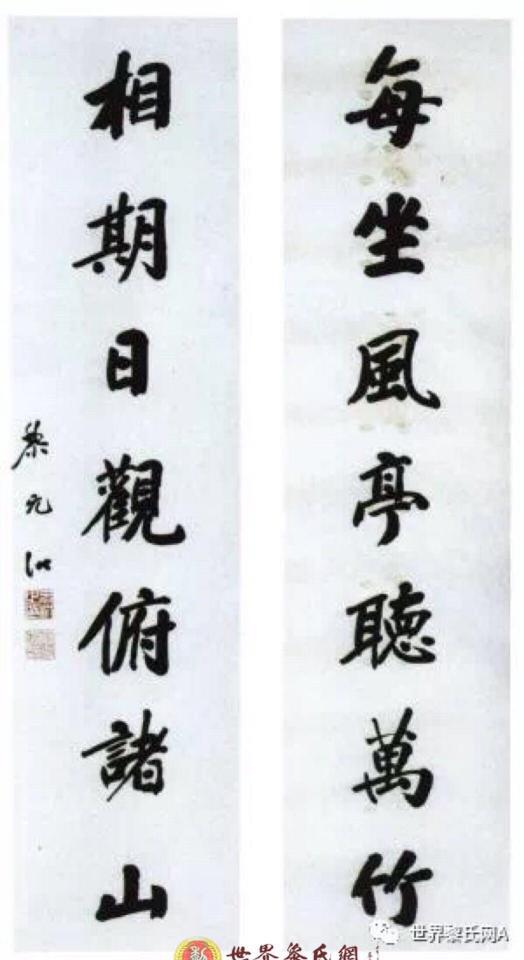 每坐風亭聽萬竹
相期日觀俯諸山
黎元洪
世界黎氏网A
世界黎氏網